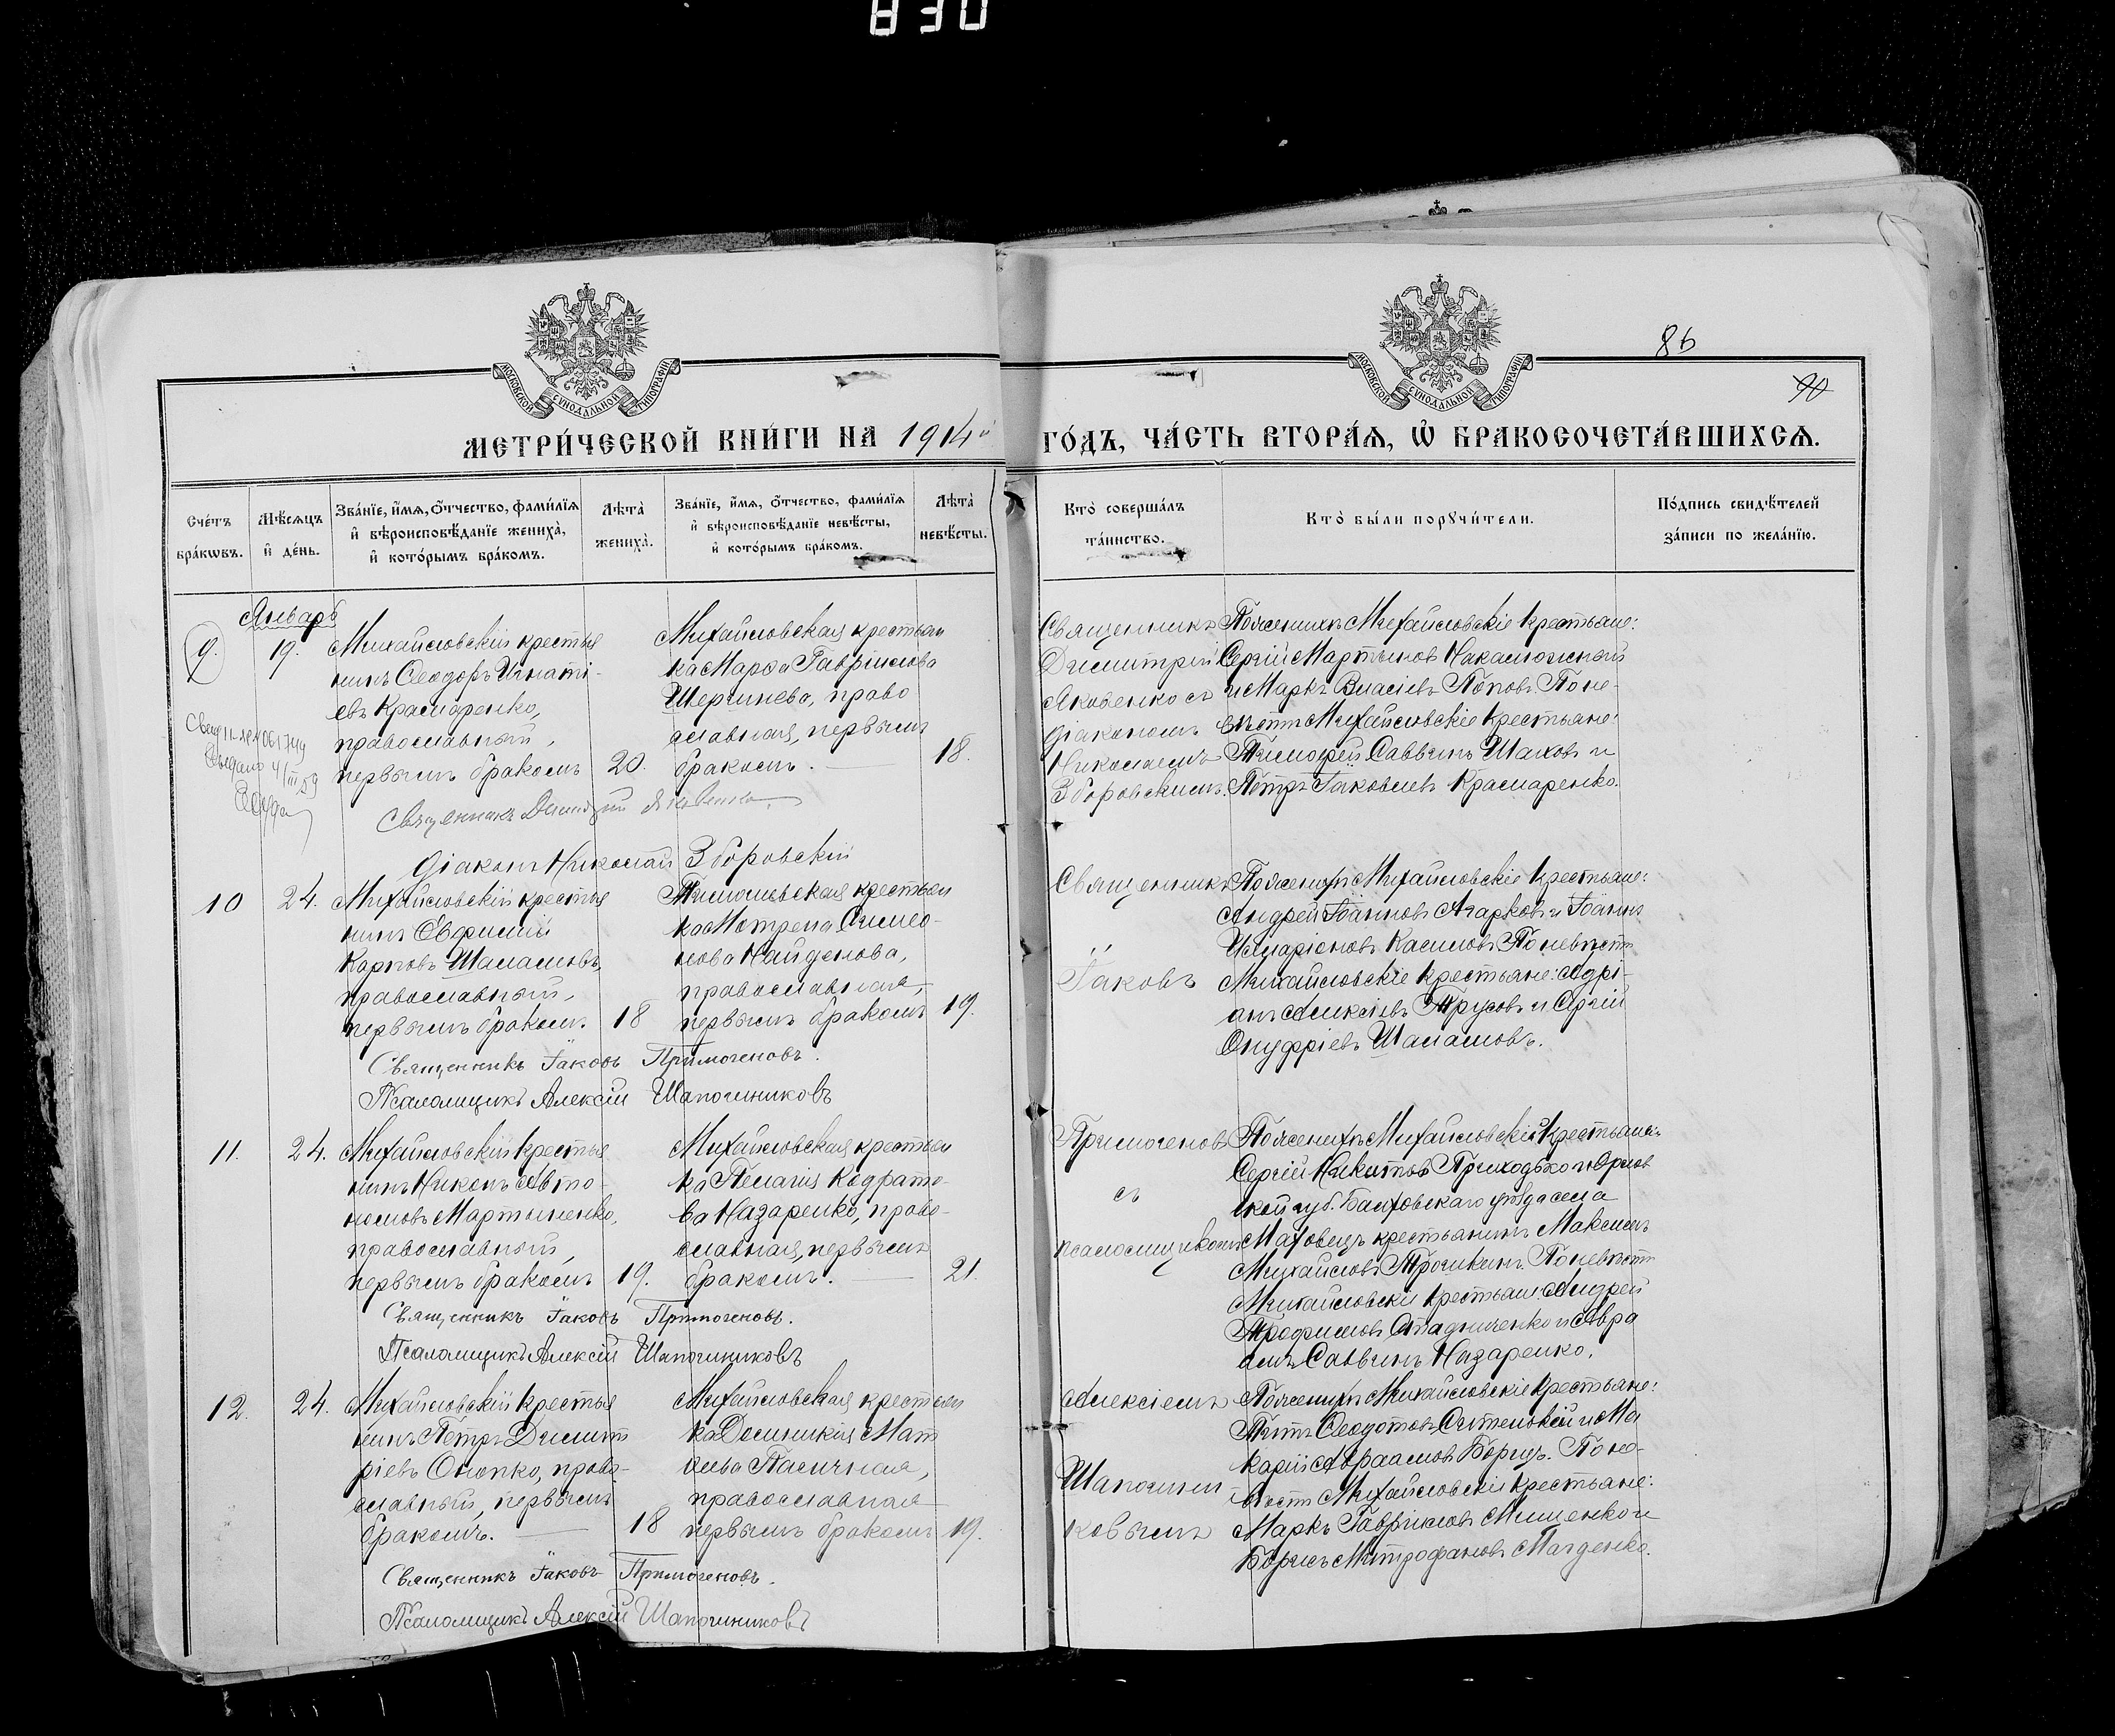 830
МОСКОВСКОЙ СѴНОДАЛЬНОЙ ТИПОГРАФІИ
МОСКОВСКОЙ СѴНОДАЛЬНОЙ ТИПОГРАФІИ
86
90
МЕТРИ́ЧЕСКОЙ КНИ́ГИ НА 1914й ГО́ДЪ, ЧА́СТЬ ВТОРА́Ѧ, Ѡ҆ БРАКОСОЧЕТА́ВШИХСѦ.
Сче́тъ бра́кѡвъ.
Мѣ́сѧцъ и҆ де́нь.
Зва́нїе, и҆́мѧ, ѻ҆́тчество, фами́лїѧ и҆ вѣроисповѣ́данїе жениха̀, и҆ кото́рымъ бра́комъ.
Лѣта̀ жениха̀.
Зва́нїе, и҆́мѧ, ѻ҆́тчество, фами́лїѧ и҆ вѣроисповѣ́данїе невѣ́сты, и҆ кото́рымъ бра́комъ.
Лѣта̀ невѣ́сты.
Кто̀ соверша́лъ та́инство.
Кто̀ бы́ли порꙋчи́тели.
По́дпись свидѣ́телей за́писи по жела́нїю.
Январь
9.
19.
Михайловскій крестья
нинъ Ѳеодоръ Игнаті-
евъ Краснаренко,
православный,
первымъ бракомъ
20.
Михайловская крестьян
ка Марѳа Гавріилова
Шергинева, право
славная, первымъ
бракомъ.
18.
Священникъ
Димитрій
Яковенко съ
діакономъ
Николаемъ
Зборовскимъ.
По женихѣ Михайловскіе крестьяне:
Сергій Мартыновъ Накалюжный
и Маркъ Власіевъ Поповъ. По не-
вѣстѣ Михайловскіе крестьяне:
Тимоѳей Саввинъ Шаховъ и
Петръ Іаковлевъ Краснаренко.
Священникъ Димитрій Яковенко
Діаконъ Николай Зборовскій
10
24.
Михайловскій крестья
нинъ Евѳимій
Карповъ Шаламовъ,
православный,
первымъ бракомъ.
18
Тимошевская крестьян
ка Мотрена Симео-
нова Найденова,
православная,
первымъ бракомъ
19.
Священникъ
Іаковъ
По женихѣ Михайловскіе крестьяне:
Андрей Іоанновъ Агарковъ и Іоаннъ
Иларіоновъ Касимовъ. По невѣстѣ
Михайловскіе крестьяне: Адрі-
анъ Алексіевъ Трусовъ и Сергій
Онуфріевъ Шаламовъ.
Священникъ Іаковъ Примогеновъ.
Псаломщикъ Алексій Шапошниковъ
11.
24.
Михайловскій крестья
нинъ Никонъ Авто-
номовъ Мартыненко,
православный,
первымъ бракомъ
19.
Михайловская крестьян
ка Пелагія Кодрато-
ва Назаренко, право-
славная, первымъ
бракомъ.
21.
Примогеновъ
съ
псаломщикомъ
По женихѣ Михайловскій крестьянинъ
Сергій Никитовъ Приходько и Орлов
ской губ. Балховскаго уѣзда села
Маховецъ крестьянинъ Максимъ
Михайловъ Трошкинъ. По невѣстѣ
Михайловскіе крестьяне: Андрей
Трофимовъ Стадниченко и Авра
амъ Саввинъ Назаренко.
Священникъ Іаковъ Примогеновъ.
Псаломщикъ Алексій Шапошниковъ
12.
24.
Михайловскій крестья
нинъ Петръ Димит
ріевъ Онопко, право-
славный, первымъ
бракомъ.
18
Михайловская крестьян
ка Доминикія Мат
ѳіева Пасичная,
православная
первымъ бракомъ
19.
Алексіемъ
Шапошни
ковымъ
По женихѣ Михайловскіе крестьяне:
Титъ Ѳеодотовъ Ситенькій и Ма
карій Авраамовъ Борщъ. По не-
вѣстѣ Михайловскіе крестьяне:
Маркъ Гавриловъ Мищенко и
Борисъ Митрофановъ Магденко.
Священникъ Іаковъ Примогеновъ.
Псаломщикъ Алексій Шапошниковъ